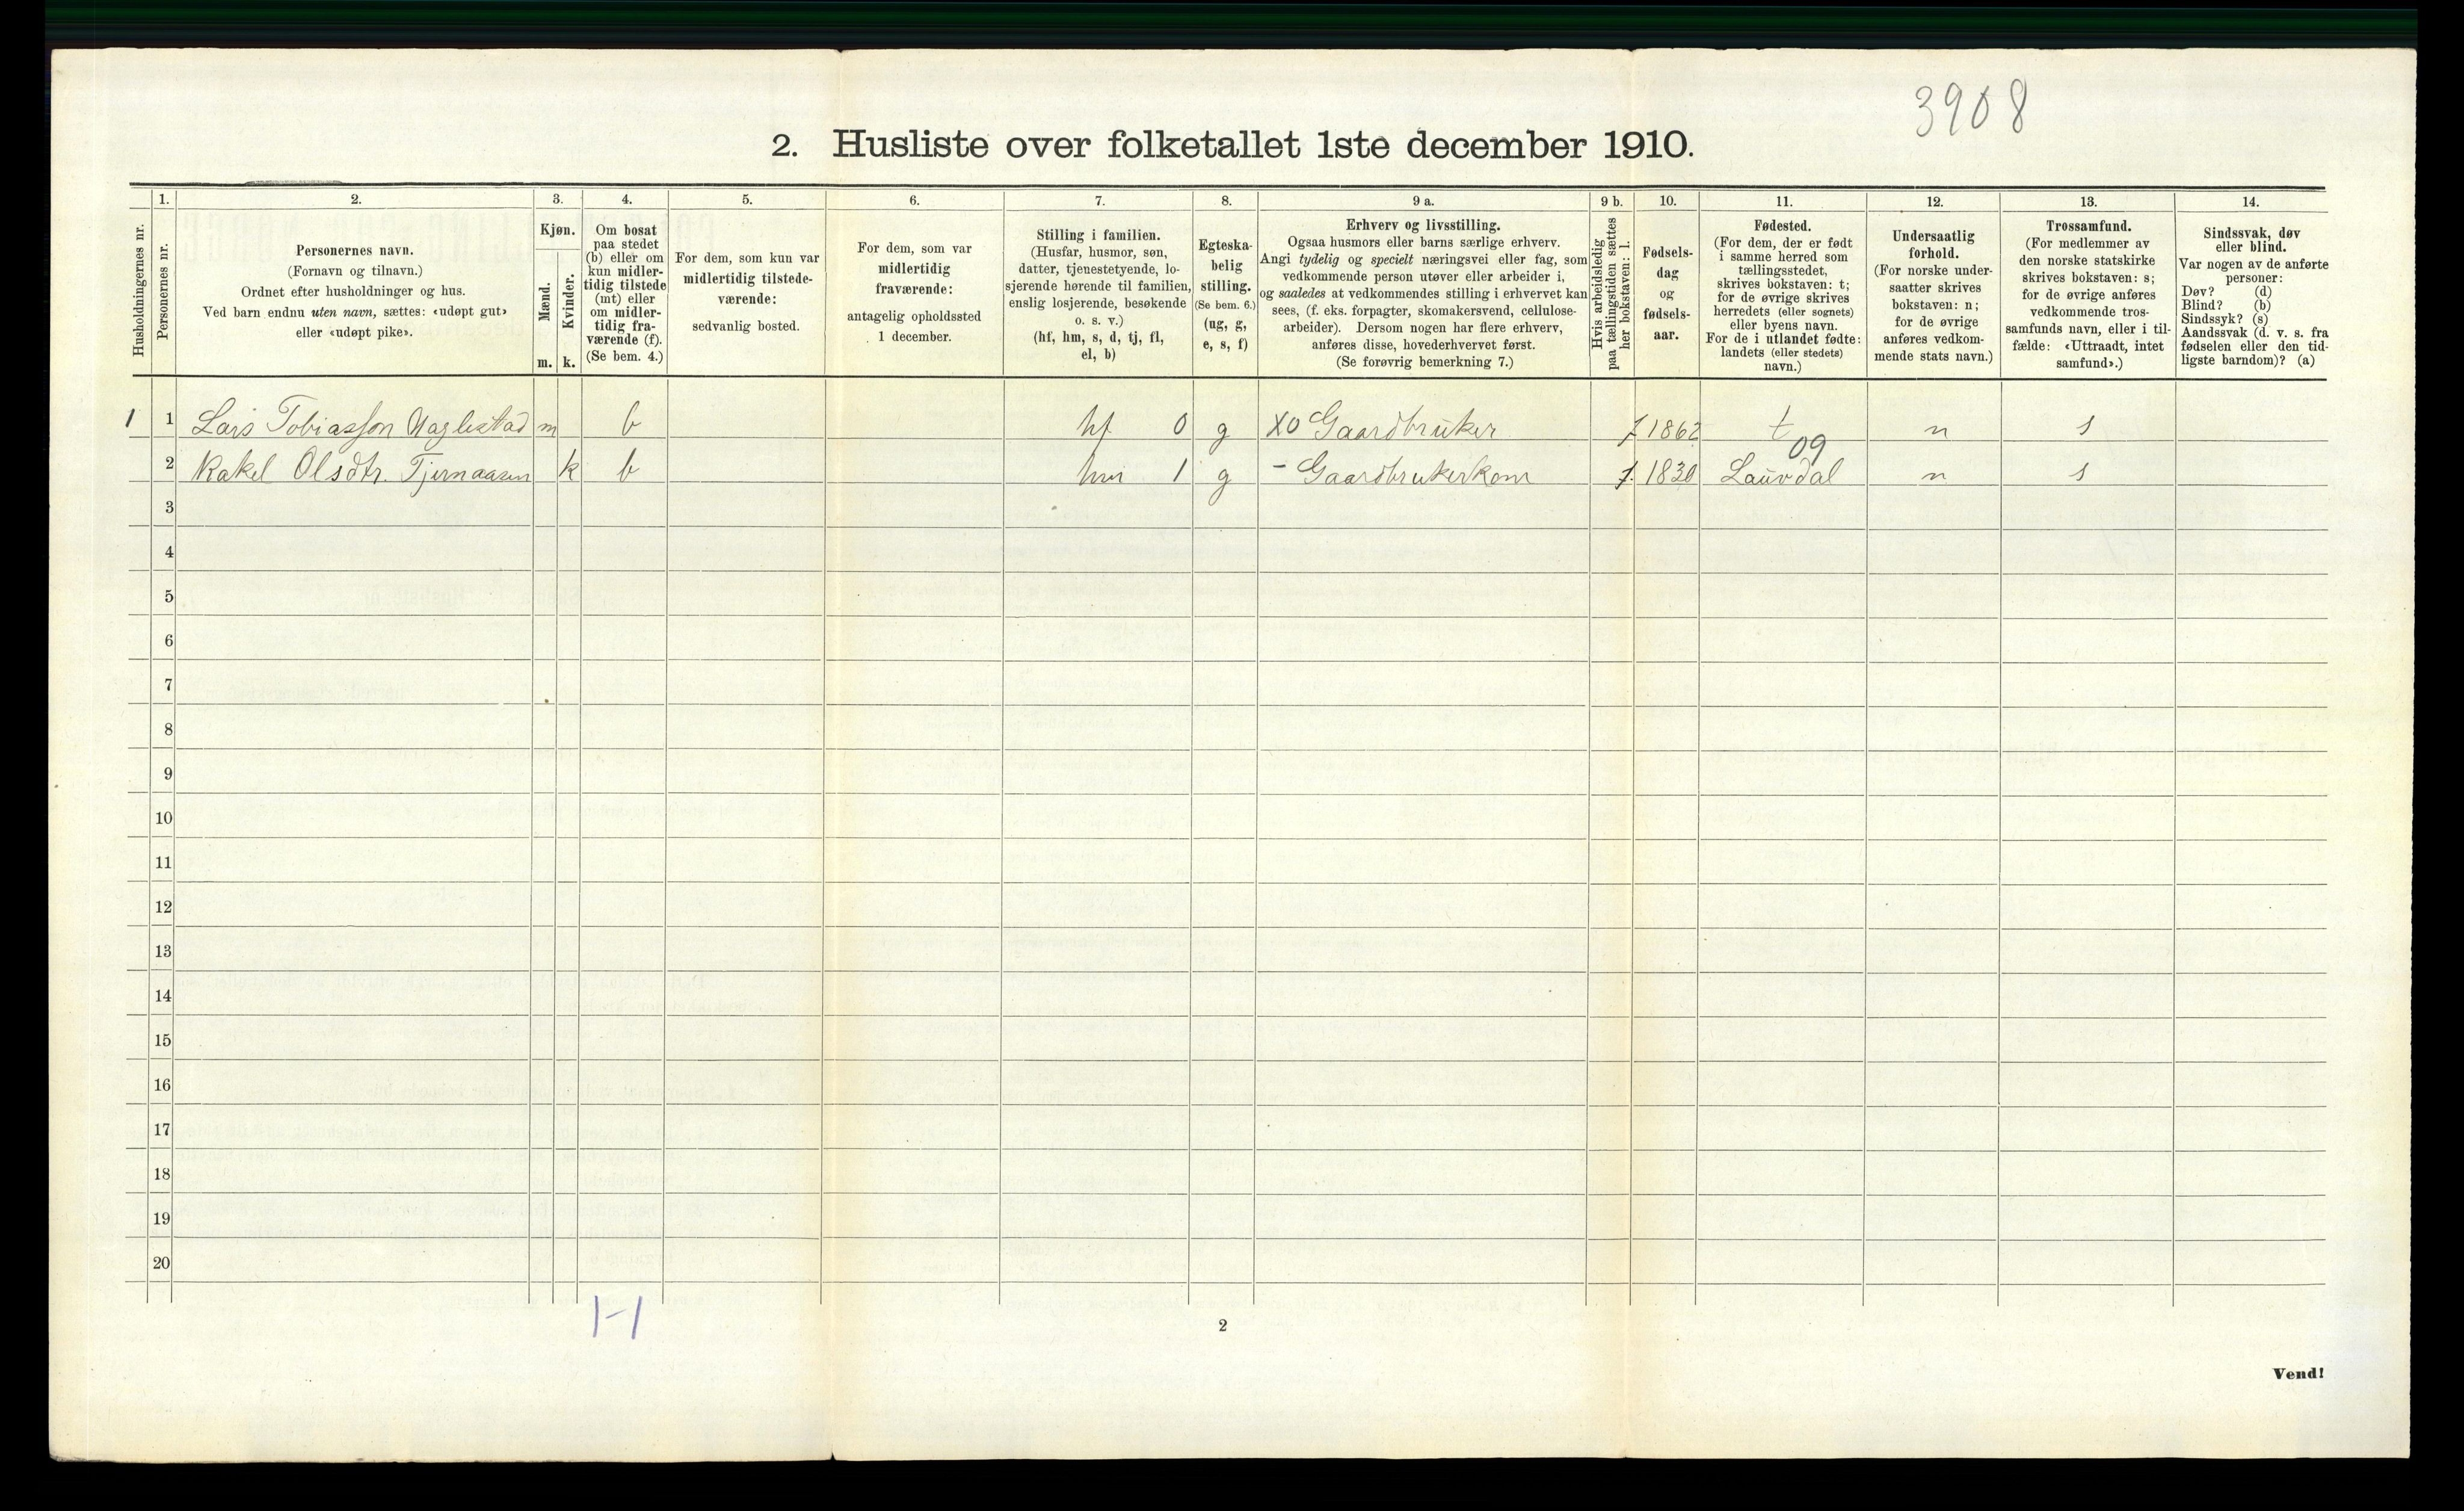 3908
2. Husliste over folketallet 1ste december 1910.
Husholdningernes nr.
1.
Personernes nr.
2.
Personernes navn.
(Fornavn og tilnavn.)
Ordnet efter husholdninger og hus.
Ved barn endnu uten navn, sættes: «udøpt gut»
eller «udøpt pike».
3.
Kjøn.
Mænd.
Kvinder.
m. k.
4.
Om bosat
paa stedet
(b) eller om
kun midler-
tidig tilstede
(mt) eller
om midler-
tidig fra-
værende (f).
(Se bem. 4.)
5.
For dem, som kun var
midlertidig tilstede-
værende:
sedvanlig bosted.
6.
For dem, som var
midlertidig
fraværende:
antagelig opholdssted
1 december.
7.
Stilling i familien.
(Husfar, husmor, søn,
datter, tjenestetyende, lo-
sjerende hørende til familien,
enslig losjerende, besøkende
o. s. v.)
(hf, hm, s, d, tj, fl,
el, b)
8.
Egteska-
belig
stilling.
(Se bem. 6.)
(ug, g,
e, s, f)
9 a.
Erhverv og livsstilling.
Ogsaa husmors eller barns særlige erhverv.
Angi tydelig og specielt næringsvei eller fag, som
vedkommende person utøver eller arbeider i,
og saaledes at vedkommendes stilling i erhvervet kan
sees, (f. eks. forpagter, skomakersvend, cellulose-
arbeider). Dersom nogen har flere erhverv,
anføres disse, hovederhvervet først.
(Se forøvrig bemerkning 7.)
9 b.
Hvis arbeidsledig
paa tællingstiden sættes
her bokstaven: l.
10.
Fødsels-
dag
og
fødsels-
aar.
11.
Fødested.
(For dem, der er født
i samme herred som
tællingsstedet,
skrives bokstaven: t;
for de øvrige skrives
herredets (eller sognets)
eller byens navn.
For de i utlandet fødte:
landets (eller stedets)
navn.)
12.
Undersaatlig
forhold.
(For norske under-
saatter skrives
bokstaven: n;
for de øvrige
anføres vedkom-
mende stats navn.)
13.
Trossamfund.
(For medlemmer av
den norske statskirke
skrives bokstaven: s;
for de øvrige anføres
vedkommende tros-
samfunds navn, eller i til-
fælde: «Uttraadt, intet
samfund».)
14.
Sindssvak, døv
eller blind.
Var nogen av de anførte
personer:
Døv? (d)
Blind? (b)
Sindssyk? (s)
Aandssvak (d. v. s. fra
fødselen eller den tid-
ligste barndom)? (a)
1 1 Lars Tobiasson m b hf 0 g X0 Gaardbruker 1862 t n s
09
2 Rakel Olsdtr. k b hm 1 g - Gaardbrukerkone 1830 Lauvdal n s
3
4
5
6
7
8
9
10
11
12
13
14
15
16
17
18
19
20
1-1
2
Vend!